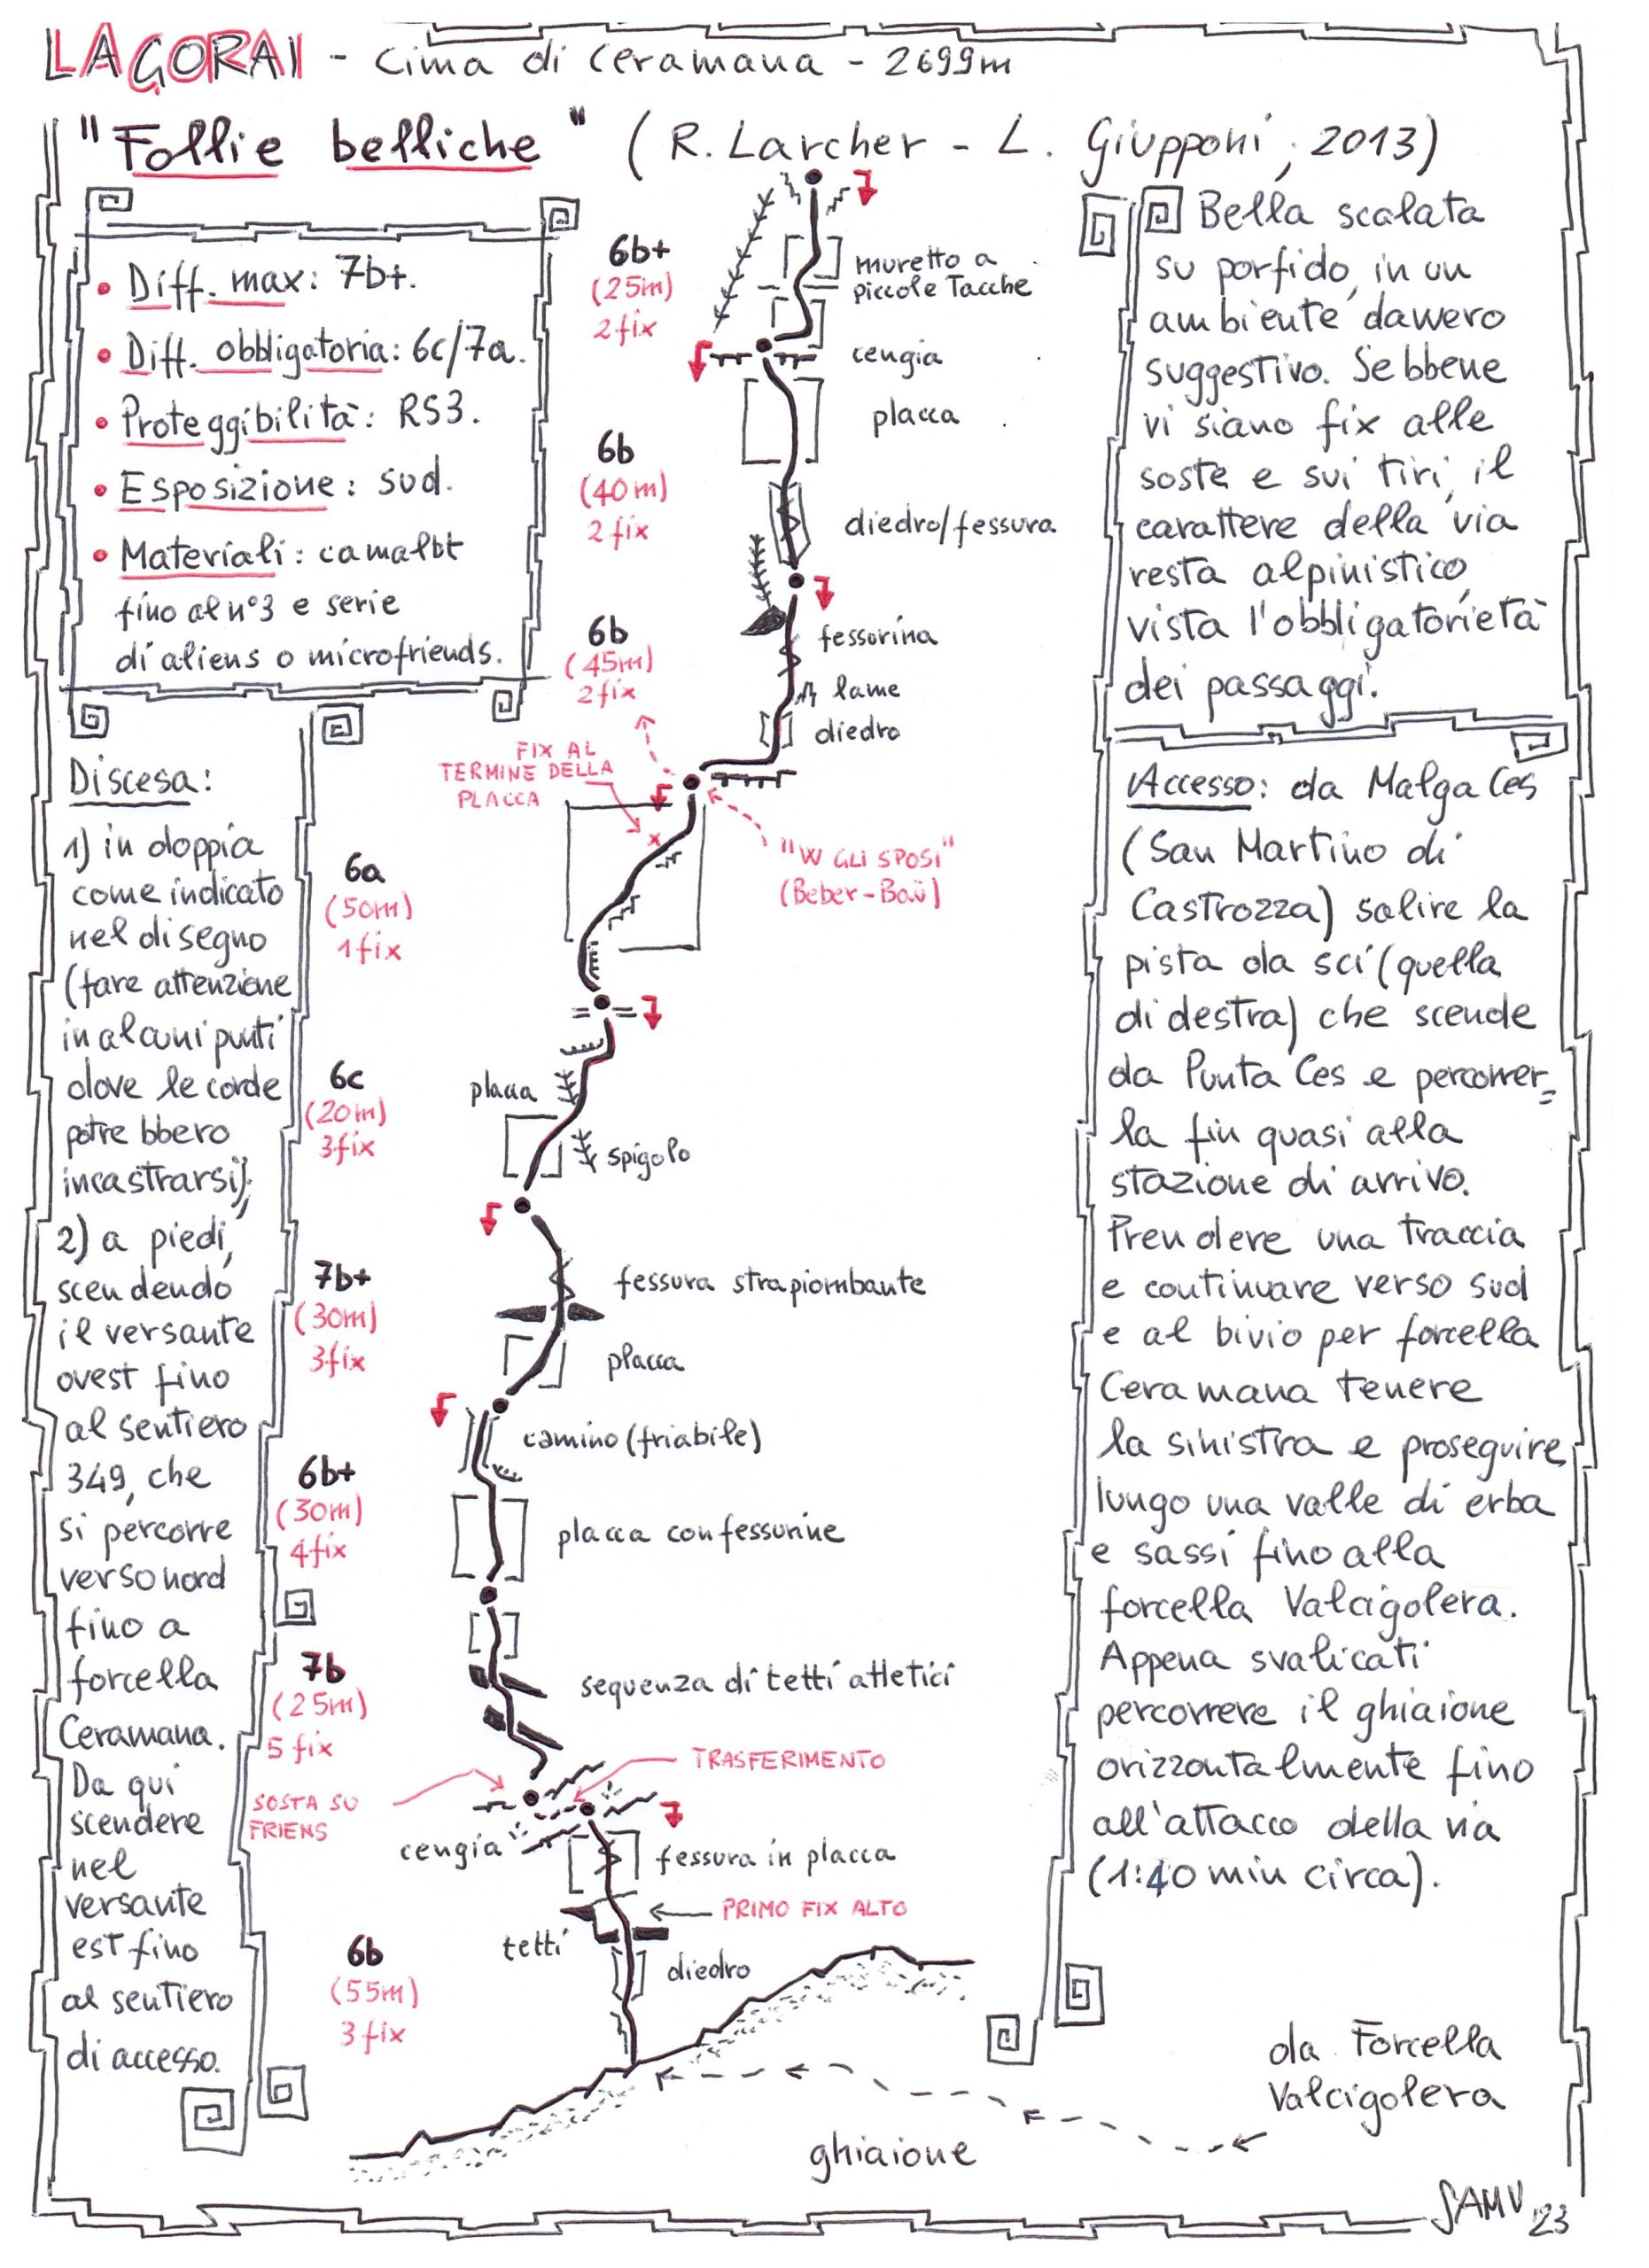 LAGORAI - Cima di Ceramana - 2699m
"Follie belliche" (R. Larcher - L. Giupponi, 2013)
• Diff. max: 7b+.
• Diff. obbligatoria: 6c/7a.
• Proteggibilità: RS3.
• Esposizione: sud.
• Materiali: camalot
fino al n°3 e serie
di aliens o microfriends.
Discesa:
1) in doppia
come indicato
nel disegno
(fare attenzione
in alcuni punti
dove le corde
potrebbero
incastrarsi);
2) a piedi,
scendendo
il versante
ovest fino
al sentiero
349, che
si percorre
verso nord
fino a
forcella
Ceramana.
Da qui
scendere
nel
versante
est fino
al sentiero
di accesso.
6b+
(25m)
2 fix
muretto a
piccole tacche
cengia
placca
6b
(40m)
2 fix
diedro/fessura
6b
(45m)
2 fix
fessurina
lame
diedro
FIX AL
TERMINE DELLA
PLACCA
"W GLI SPOSI"
(Beber-Baù)
6a
(50m)
1 fix
6c
(20m)
3 fix
placca
spigolo
7b+
(30m)
3 fix
fessura strapiombante
placca
camino (friabile)
6b+
(30m)
4 fix
placca con fessurine
7b
(25m)
5 fix
sequenza di tetti atletici
TRASFERIMENTO
SOSTA SU
FRIENS
cengia
fessura in placca
PRIMO FIX ALTO
tetti
6b
(55m)
3 fix
diedro
Bella scalata
su porfido, in un
ambiente davvero
suggestivo. Sebbene
vi siano fix alle
soste e sui tiri, il
carattere della via
resta alpinistico,
vista l'obbligatorietà
dei passaggi.
Accesso: da Malga Ces
(San Martino di
Castrozza) salire la
pista da sci (quella
di destra) che scende
da Punta Ces e percorrer=
la fin quasi alla
stazione di arrivo.
Prendere una traccia
e continuare verso sud
e al bivio per forcella
Ceramana tenere
la sinistra e proseguire
lungo una valle di erba
e sassi fino alla
forcella Valcigolera.
Appena svalicati
percorrere il ghiaione
orizzontalmente fino
all'attacco della via
(1:40 min circa).
da Forcella
Valcigolera
ghiaione
SAMU '23